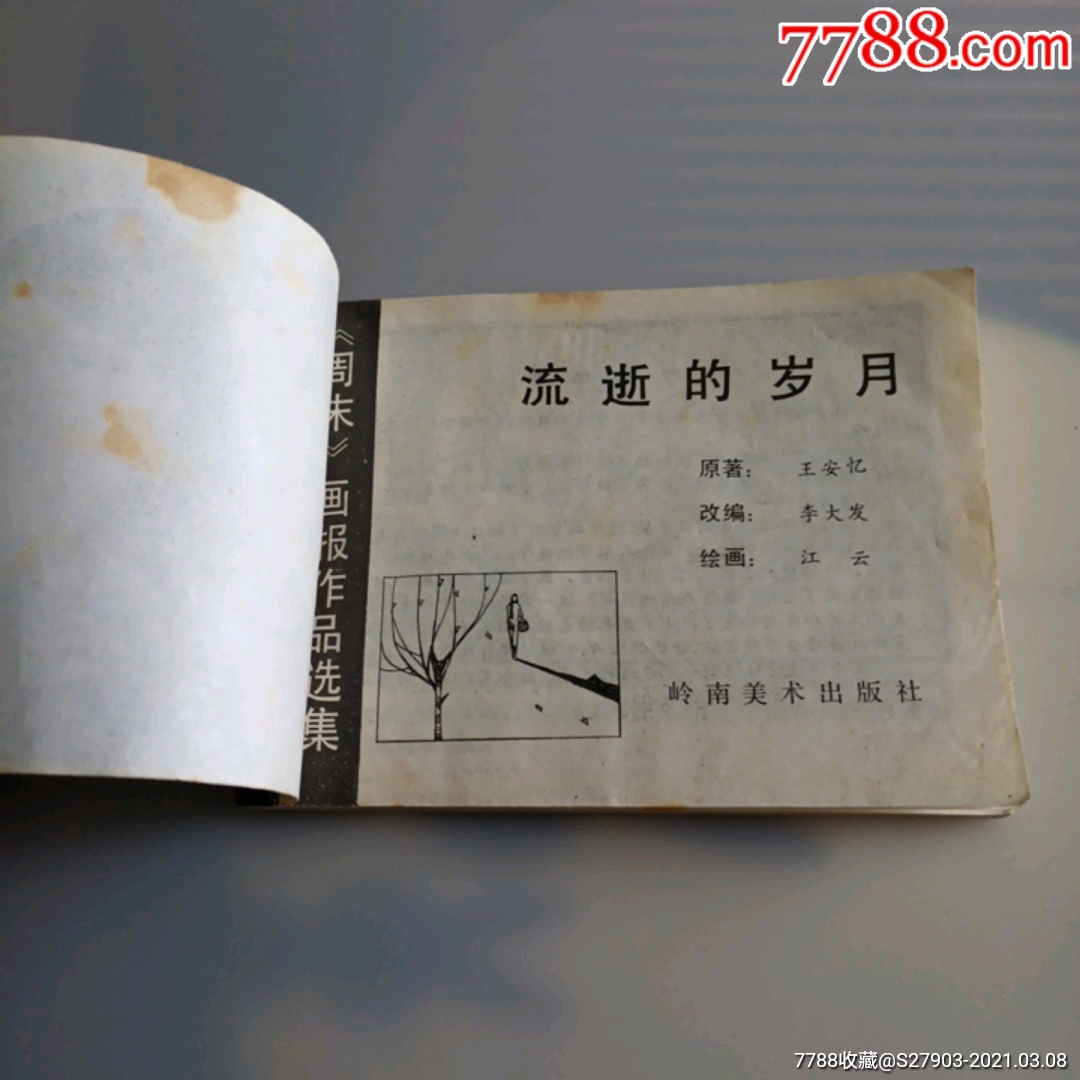 7788.com
《周末》画报作品选集
流逝的岁月
原著： 王安忆
改编： 李大发
绘画： 江云
岭南美术出版社
7788收藏@S27903-2021.03.08